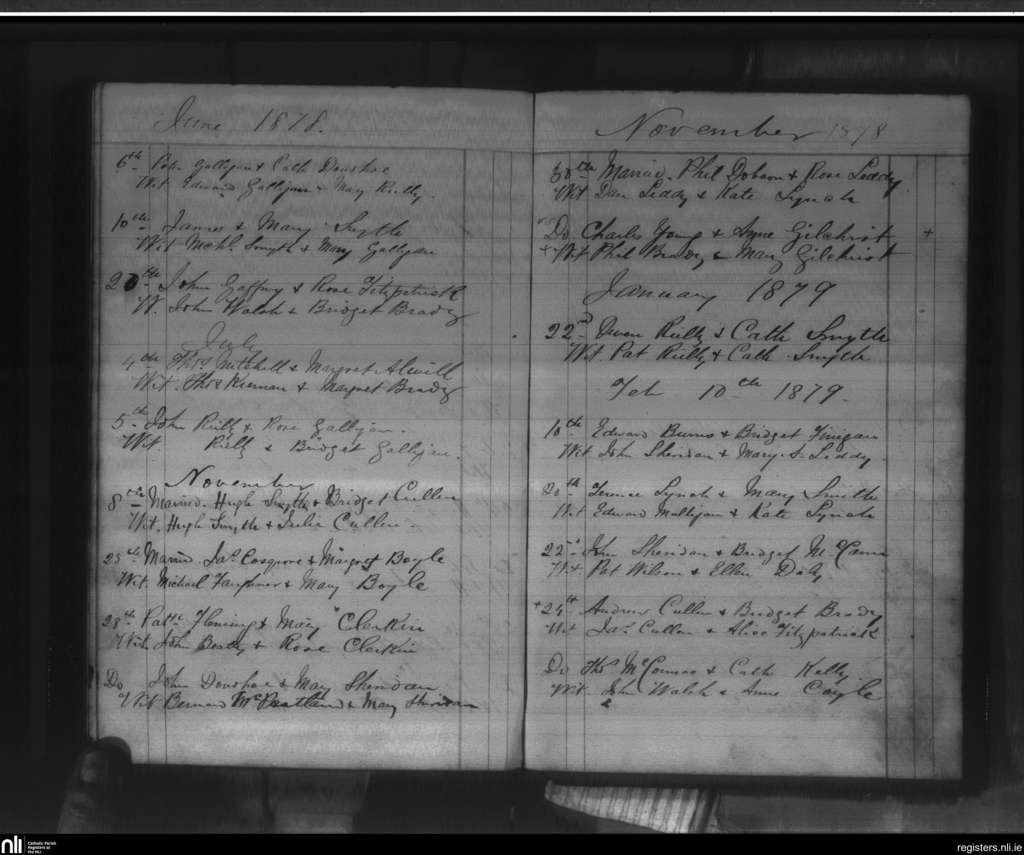 June 1878.
6th Peter Galligan & Cath Donohoe
Wit Edward Galligan & Mary Reilly.
10th James & Mary Smyth
Wit Mchl Smyth & Mary Galligan
20th John Gaffney & Rose Fitzpatrick
W. John Walsh & Bridget Brady
July
4th Thos Mitchell & Margret
Wit. Thos Kiernan & Margret Brady
5th John Reilly & Rose Galligan.
Wit. Reilly & Bridget Galligan.
November
8th Married. Hugh Smyth & Bridget Cullen
Wit. Hugh Smyth & Julia Cullen.
25th Married. Jas Cosgrove & Margret Boyle
Wit. Michael & Mary Boyle
28th Patk Fleming & Mary Clerkin
Wit. John & Rose Clerkin
Do John Donohoe & Mary Sheridan
Wit Bernard McPartland & Mary Sheridan
November 1878
30th Married. Phil Dobson & Rose Leddy
Wit Dan Leddy & Kate Lynch
Do Charles Young & Anne Gilchrist +
+ Wit Phil Brady & Mary Gilchrist
January 1879
22nd Owen Reilly & Cath Smyth
Wit. Pat Reilly & Cath Smyth
Feb 10th 1879.
10th Edward Burns & Bridget Finigan
Wit John Sheridan & Mary Leddy.
20th Terence Lynch & Mary Smith
Wit Edward Mulligan & Kate Lynch
22nd John Sheridan & Bridget McCann
Wit Pat Wilson & Ellen Daly
+ 24th Andrew Cullen & Bridget Brady
Wit Jas Cullen & Alice Fitzpatrick
Do Thos & Cath Kelly.
Wit. John Walsh & Anne Coyle
nli Catholic Parish
Registers at
the NLI
registers.nli.ie